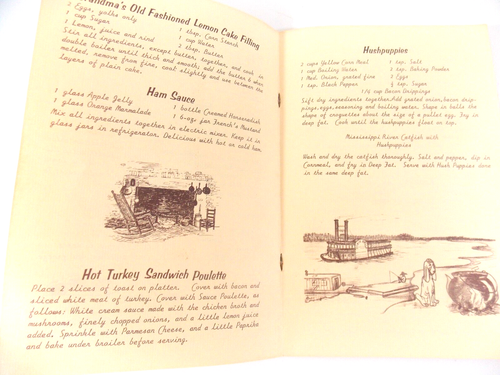 Grandma's Old Fashioned Lemon Cake Filling
2 Eggs, yolks only
1 cup Sugar
1 Lemon, juice and rind
1 tbsp. Corn Starch
1 cup Water
2 tbsp. Butter
Stir all ingredients, except butter, together, and cook in
double boiler until thick and smooth; add the butter &. when
melted, remove from fire, cool slightly and use between the
layers of plain cake.
Ham Sauce
1 glass Apple Jelly
1 glass Orange Marmalade
1 bottle Creamed Horseradish
1 6-oz jar French's Mustard
Mix all ingredients together in electric mixer. Keep it in
glass jars in refrigerator. Delicious with hot or cold ham.
Hot Turkey Sandwich Poulette
Place 2 slices of toast on platter. Cover with bacon and
sliced white meat of turkey. Cover with Sauce Poulette, as
follows: White cream sauce made with the chicken broth and
mushrooms, finely chopped onions, and a little lemon juice
added. Sprinkle with Parmesan Cheese, and a little Paprika
and bake under broiler before serving.
Hushpuppies
2 cups Yellow Corn Meal
1 cup Boiling Water
1 Med. Onion, grated fine
1 tsp. Black Pepper
1 tsp. Salt
1 tsp. Baking Powder
2 Eggs
1/2 tsp. Sugar
1/4 cup Bacon Drippings
Sift dry ingredients together. Add grated onion, bacon drip-
pings, eggs, seasoning and boiling water. Shape in balls the
shape of croquettes about the size of a pullet egg. Fry in
deep fat. Cook until the hushpuppies float on top.
Mississippi River Catfish with
Hushpuppies
Wash and dry the catfish thoroughly. Salt and pepper, dip in
Cornmeal, and fry in Deep Fat. Serve with Hush Puppies done
in the same deep fat.